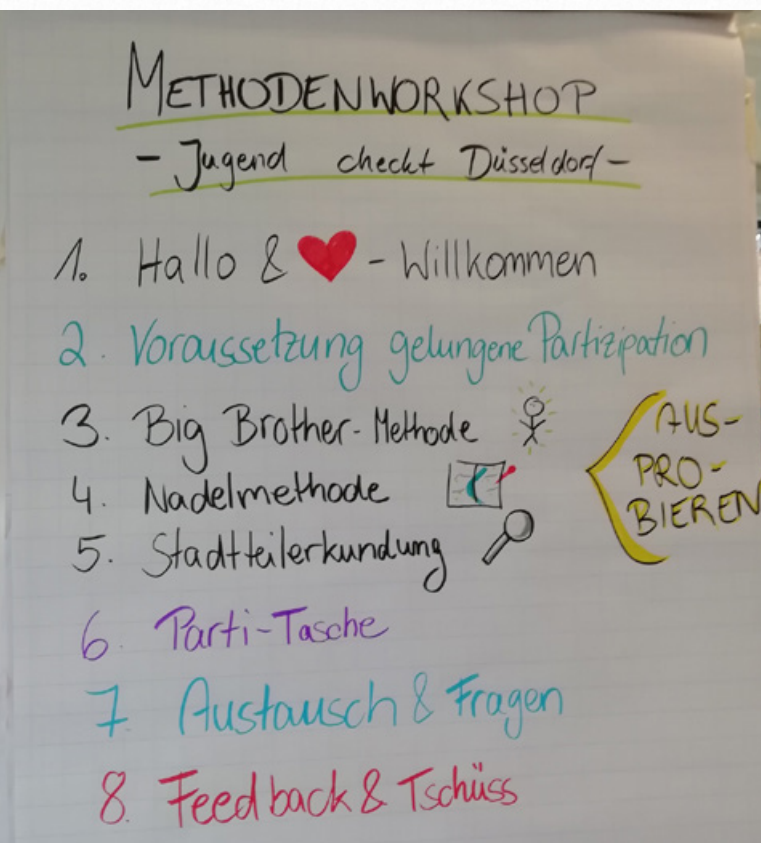 METHODENWORKSHOP
- Jugend checkt Düsseldorf -
1. Hallo & ❤ - Willkommen
2. Voraussetzung gelungene Partizipation
3. Big Brother-Methode
4. Nadelmethode
5. Stadtteilerkundung
AUS-
PRO-
BIEREN
6. Parti-Tasche
7. Austausch & Fragen
8. Feedback & Tschüss